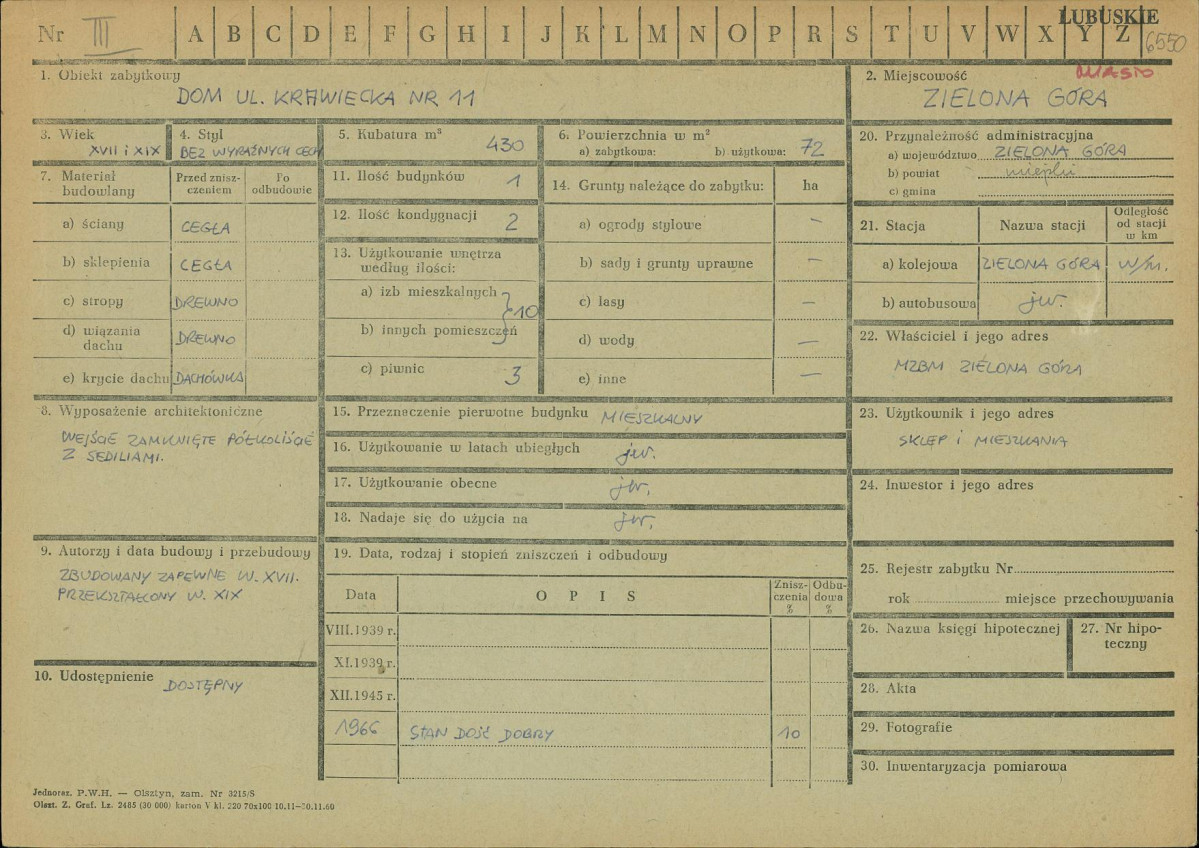 Nr III A B C D E F G H I J K L M N O P R S T U V W X Y Z LUBUSKIE
6550
1. Obiekt zabytkowy
DOM UL. KRAWIECKA NR 11
2. Miejscowość MIASTO
ZIELONA GÓRA
3. Wiek
XVII i XIX
4. Styl
BEZ WYRAŹNYCH CECH
5. Kubatura m³ 430
6. Powierzchnia w m²
a) zabytkowa: b) użytkowa: 72
20. Przynależność administracyjna
a) województwo ZIELONA GÓRA
b) powiat miejski
c) gmina
7. Materiał budowlany
Przed zniszczeniem
Po odbudowie
a) ściany CEGŁA
b) sklepienia CEGŁA
c) stropy DREWNO
d) wiązania dachu DREWNO
e) krycie dachu DACHÓWKA
11. Ilość budynków 1
12. Ilość kondygnacji 2
13. Użytkowanie wnętrza
według ilości:
a) izb mieszkalnych
} 10
b) innych pomieszczeń
c) piwnic 3
14. Grunty należące do zabytku: ha
a) ogrody stylowe —
b) sady i grunty uprawne —
c) lasy —
d) wody —
e) inne —
21. Stacja Nazwa stacji Odległość od stacji w km
a) kolejowa ZIELONA GÓRA w/m.
b) autobusowa jw.
22. Właściciel i jego adres
MZBM ZIELONA GÓRA
8. Wyposażenie architektoniczne
WEJŚCIE ZAMKNIĘTE PÓŁKOLIŚCIE
Z SEDILIAMI.
15. Przeznaczenie pierwotne budynku MIESZKALNY
16. Użytkowanie w latach ubiegłych jw.
17. Użytkowanie obecne jw.
18. Nadaje się do użycia na jw.
23. Użytkownik i jego adres
SKLEP i MIESZKANIA
24. Inwestor i jego adres
9. Autorzy i data budowy i przebudowy
ZBUDOWANY ZAPEWNE W. XVII.
PRZEKSZTAŁCONY W. XIX
10. Udostępnienie
DOSTĘPNY
19. Data, rodzaj i stopień zniszczeń i odbudowy
Data O P I S Zniszczenia % Odbudowa %
VIII.1939 r.
XI.1939 r.
XII.1945 r.
1966 STAN DOŚĆ DOBRY 10
25. Rejestr zabytku Nr
rok miejsce przechowywania
26. Nazwa księgi hipotecznej
27. Nr hipoteczny
28. Akta
29. Fotografie
30. Inwentaryzacja pomiarowa
Jednoraz. P.W.H. — Olsztyn, zam. Nr 3215/S
Olszt. Z. Graf. Lz. 2485 (30 000) karton V kl. 220 70x100 10.11—30.11.60